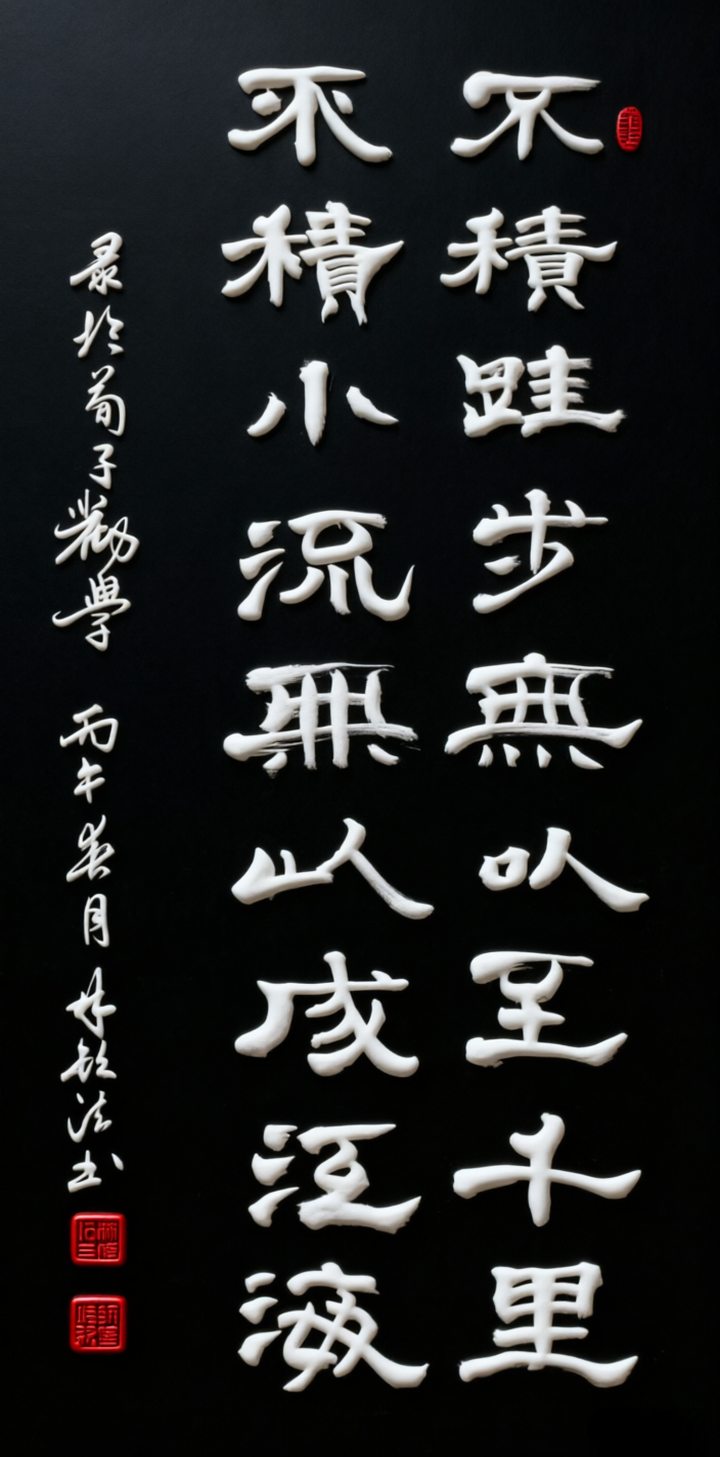 不積跬步無以至千里
不積小流無以成江海
录於荀子勸學 丙午春月 林欽法书